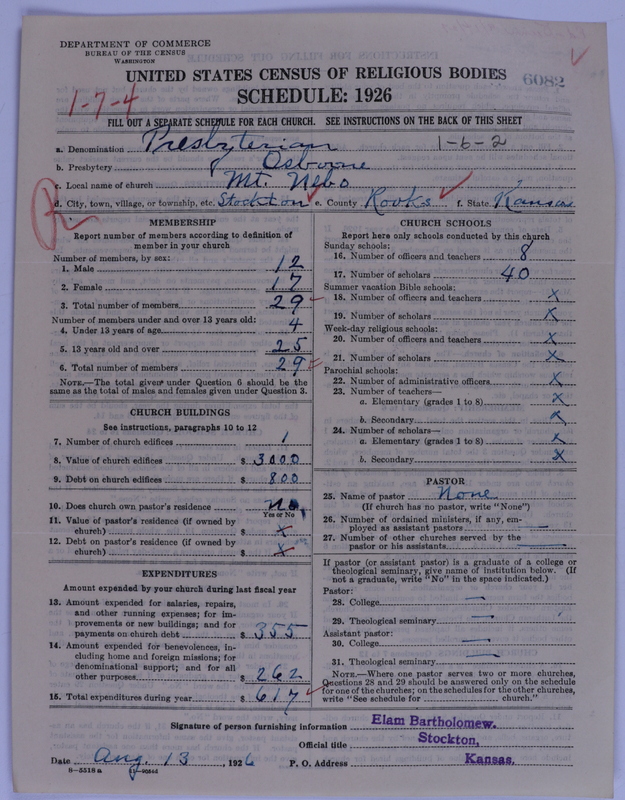 DEPARTMENT OF COMMERCE
BUREAU OF THE CENSUS
WASHINGTON
UNITED STATES CENSUS OF RELIGIOUS BODIES
6082
SCHEDULE: 1926
1-7-4
FILL OUT A SEPARATE SCHEDULE FOR EACH CHURCH. SEE INSTRUCTIONS ON THE BACK OF THIS SHEET
a. Denomination Presbyterian 1-6-2
b. Presbytery of Osborne
c. Local name of church Mt. Nebo
d. City, town, village, or township, etc. Stockton e. County Rooks f. State Kansas
MEMBERSHIP
Report number of members according to definition of
member in your church
Number of members, by sex:
1. Male 12
2. Female 17
3. Total number of members 29
Number of members under and over 13 years old:
4. Under 13 years of age 4
5. 13 years old and over 25
6. Total number of members 29
NOTE.—The total given under Question 6 should be the
same as the total of males and females given under Question 3.
CHURCH BUILDINGS
See instructions, paragraphs 10 to 12
7. Number of church edifices 1
8. Value of church edifices $ 3000
9. Debt on church edifices $ 800
10. Does church own pastor's residence No
Yes or No
11. Value of pastor's residence (if owned by
church) $ x
12. Debt on pastor's residence (if owned by
church) $ x
EXPENDITURES
Amount expended by your church during last fiscal year
13. Amount expended for salaries, repairs,
and other running expenses; for im-
provements or new buildings; and for
payments on church debt $ 355
14. Amount expended for benevolences, in-
cluding home and foreign missions; for
denominational support; and for all
other purposes $ 262
15. Total expenditures during year $ 617
CHURCH SCHOOLS
Report here only schools conducted by this church
Sunday schools:
16. Number of officers and teachers 8
17. Number of scholars 40
Summer vacation Bible schools:
18. Number of officers and teachers x
19. Number of scholars x
Week-day religious schools:
20. Number of officers and teachers x
21. Number of scholars x
Parochial schools:
22. Number of administrative officers x
23. Number of teachers—
a. Elementary (grades 1 to 8) x
b. Secondary x
24. Number of scholars—
a. Elementary (grades 1 to 8) x
b. Secondary x
PASTOR
25. Name of pastor None
(If church has no pastor, write "None")
26. Number of ordained ministers, if any, em-
ployed as assistant pastors —
27. Number of other churches served by the
pastor or his assistants —
If pastor (or assistant pastor) is a graduate of a college or
theological seminary, give name of institution below. (If
not a graduate, write "No" in the space indicated.)
Pastor:
28. College —
29. Theological seminary —
Assistant pastor:
30. College —
31. Theological seminary —
NOTE.—Where one pastor serves two or more churches,
Questions 28 and 29 should be answered only on the schedule
for one of the churches; on the schedules for the other churches,
write "See schedule for church."
Signature of person furnishing information Elam Bartholomew.
Official title Stockton,
Date Aug. 13, 1926 P. O. Address Kansas.
8—5518a